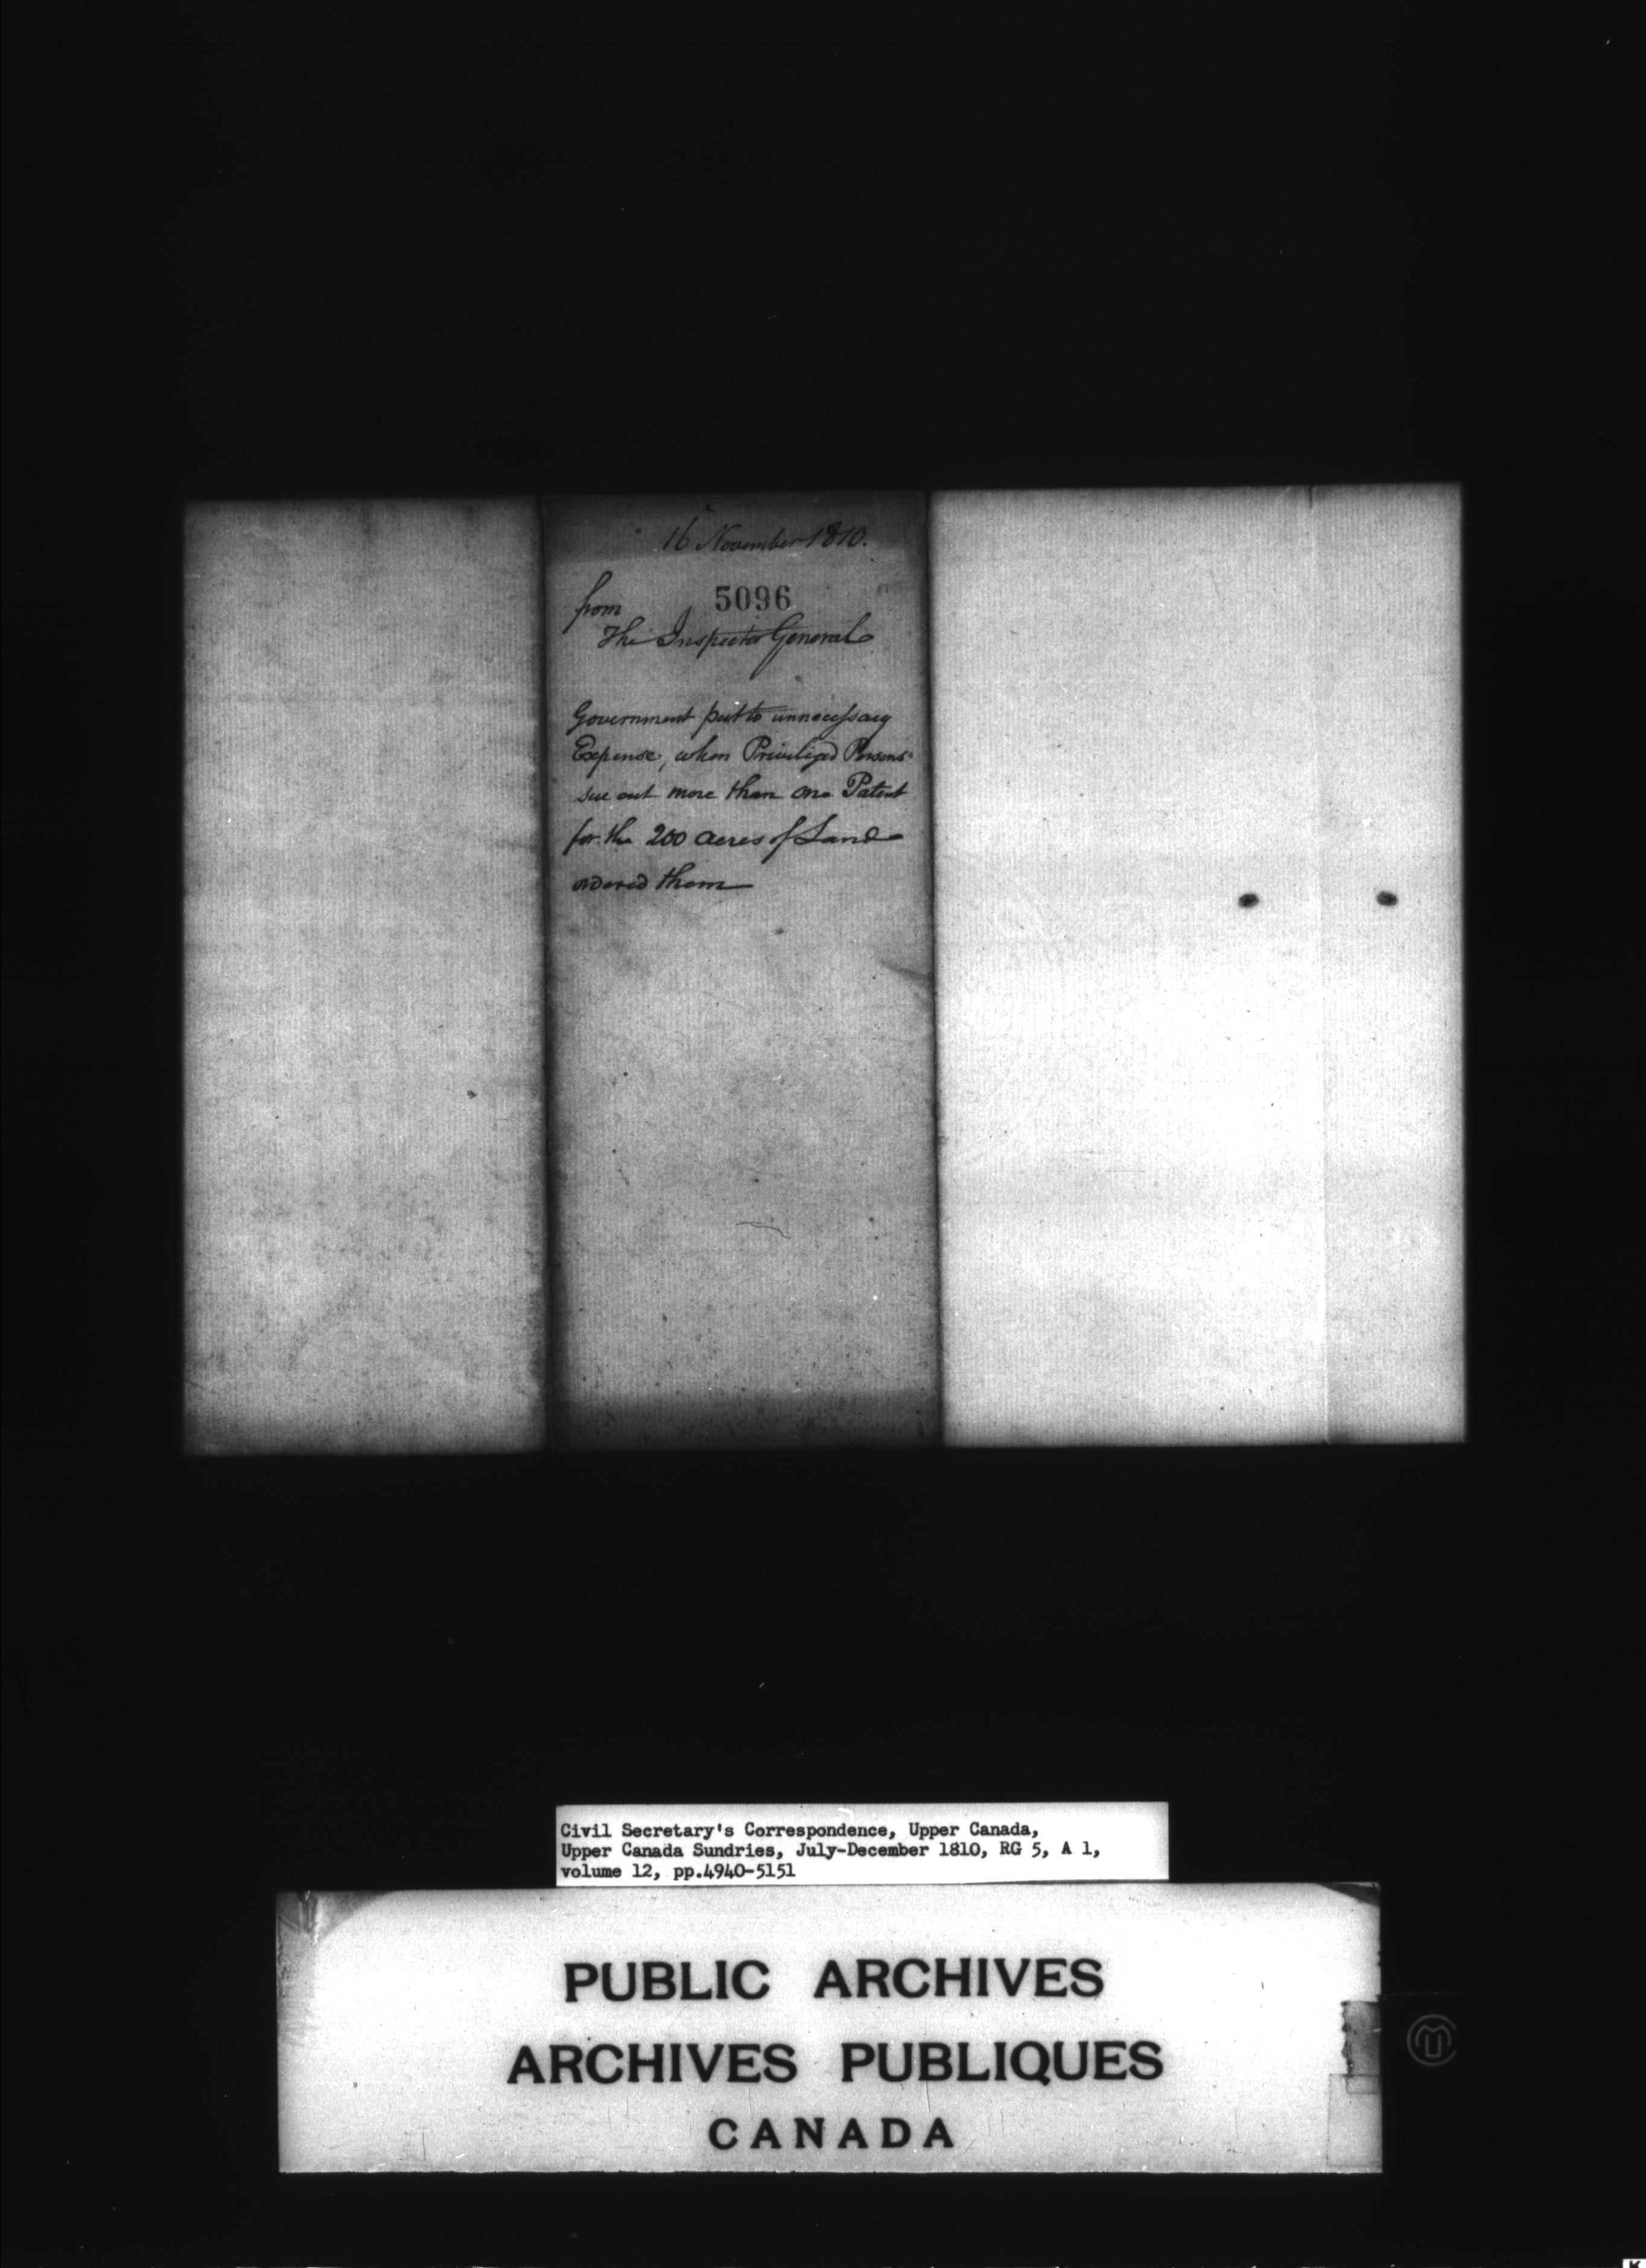 16 November 1810.
5096
from
The Inspector General
Government put to unnecessary
Expense, when Priviliged Persons
sue out more than one Patent
for the 200 acres of Land
ordered them
Civil Secretary's Correspondence, Upper Canada,
Upper Canada Sundries, July-December 1810, RG 5, A 1,
volume 12, pp.4940-5151
PUBLIC ARCHIVES
ARCHIVES PUBLIQUES
CANADA